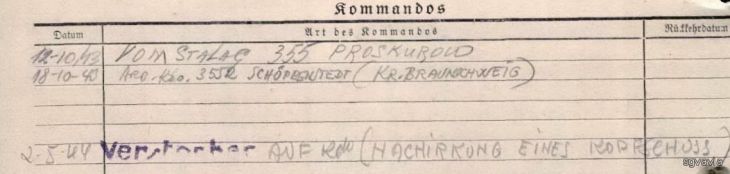 Kommandos
Datum Art des Kommandos Rückkehrdatum
12-10/43 VOM STALAG 355 PROSKUROW
18-10-43 ARB.-Kdo. 3552 SCHÖPENSTEDT (KR. BRAUNSCHWEIG)
2-5-44 Verstorben AUF Kdo (NACHIRKUNG EINES KOPFSCHUSS)
sgvavia